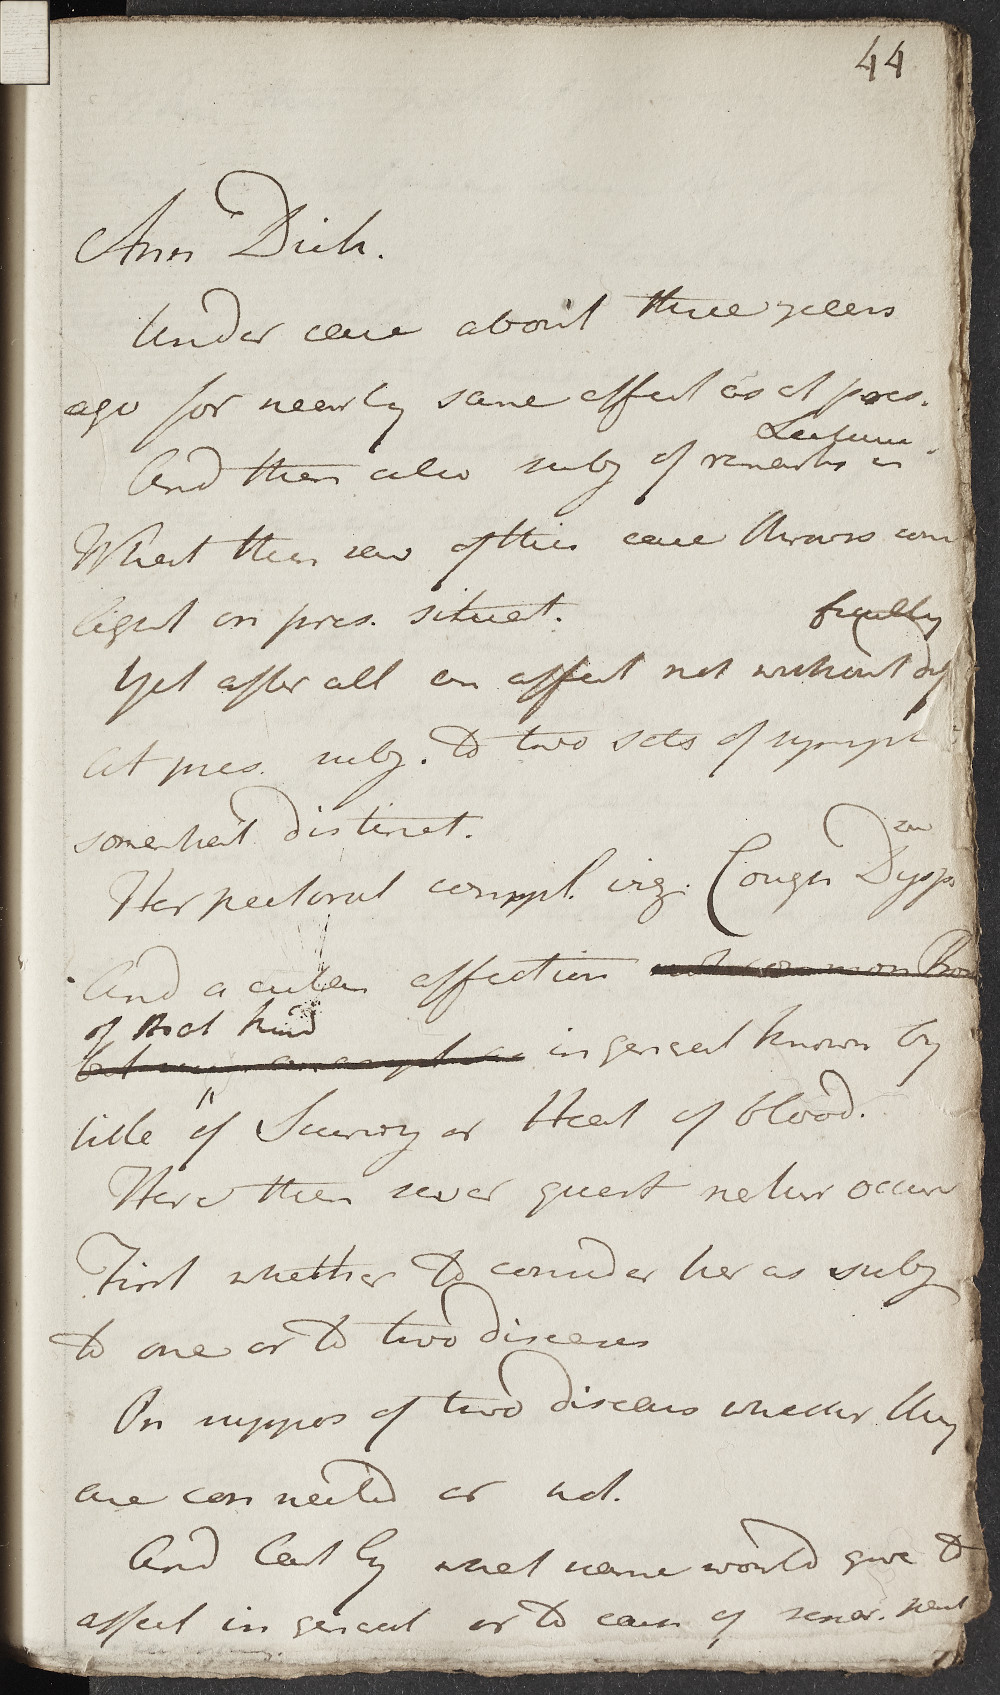 44
Ann Dick.
Under care about three years
ago for nearly same affect as at pres.
Lectures
And then also subj of remarks in
What then saw of this case throws some
light on pres. situat.
ficulty
Yet after all an affect not without dif
At pres. subj. to two sets of sympt
somewhat distinct.
Her pectoral compl. viz. Cough Dysp
And a cutan affection not common
of that kind
in general known by
title of Scurvy or Heat of blood.
Here then sever quest natur occur
First whether to consider her as subj
to one or to two diseases
On suppos of two diseases whether they
are connected or not.
And lastly what name would give to
affect in general or to each of sever.